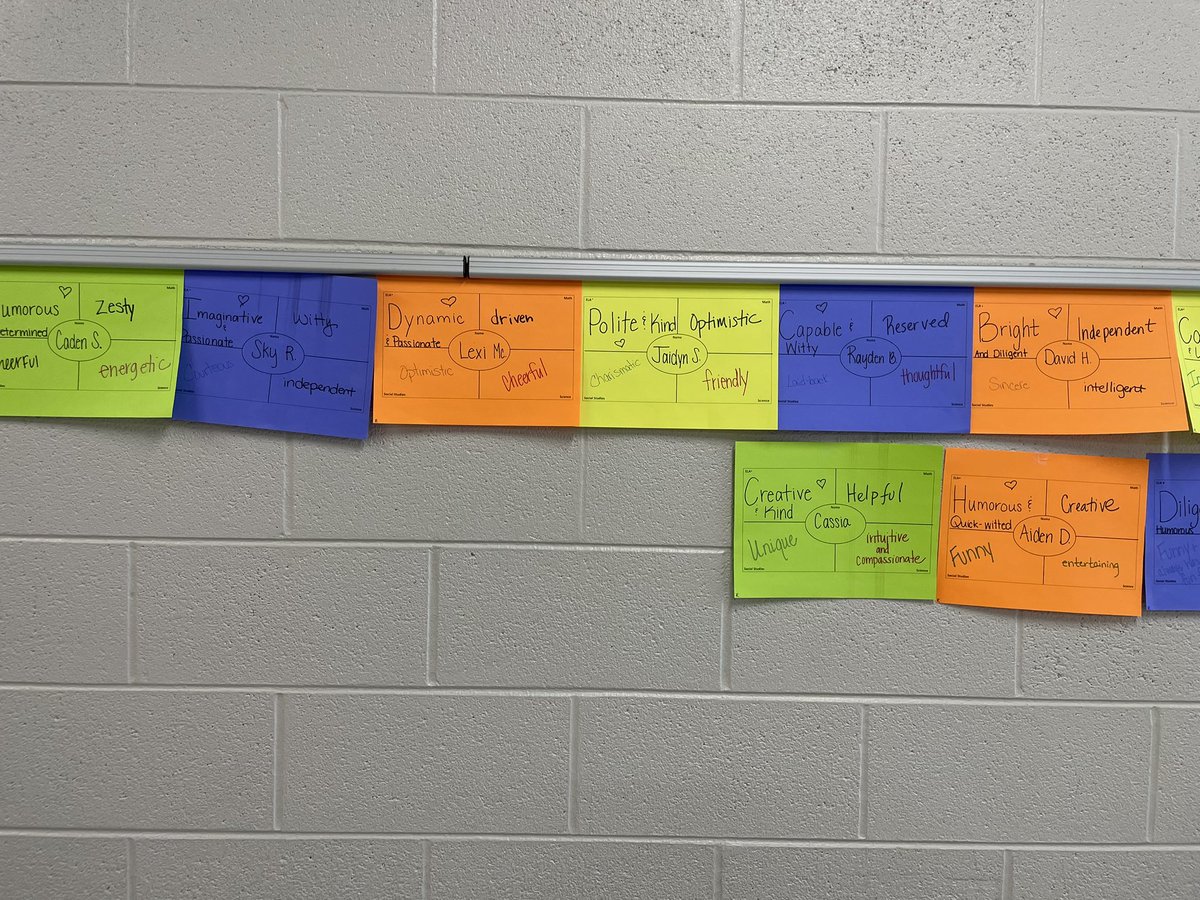 umorous
Zesty
etermined
Caden S.
heerful
energetic
Imaginative
&
Passionate
Witty
Sky R.
Courteous
independent
Science
ELA*
Math
Dynamic
& Passionate
driven
Name
Lexi Mc.
Optimistic
cheerful
Social Studies
Science
ELA*
Math
Polite & Kind
Optimistic
Name
Jaidyn S.
Charismatic
friendly
Social Studies
Science
Capable &
Witty
Reserved
Name
Rayden B.
Laid-back
thoughtful
Social Studies
Science
ELA*
Math
Bright
And Diligent
Independent
Name
David H.
Sincere
intelligent
Social Studies
Science
ELA*
Math
Creative
& Kind
Helpful
Name
Cassia
Unique
intuitive
and
compassionate
Social Studies
Science
ELA*
Math
Humorous &
Quick-witted
Creative
Name
Aiden D.
Funny
entertaining
Social Studies
Science
Dilig
Humorous
Funny